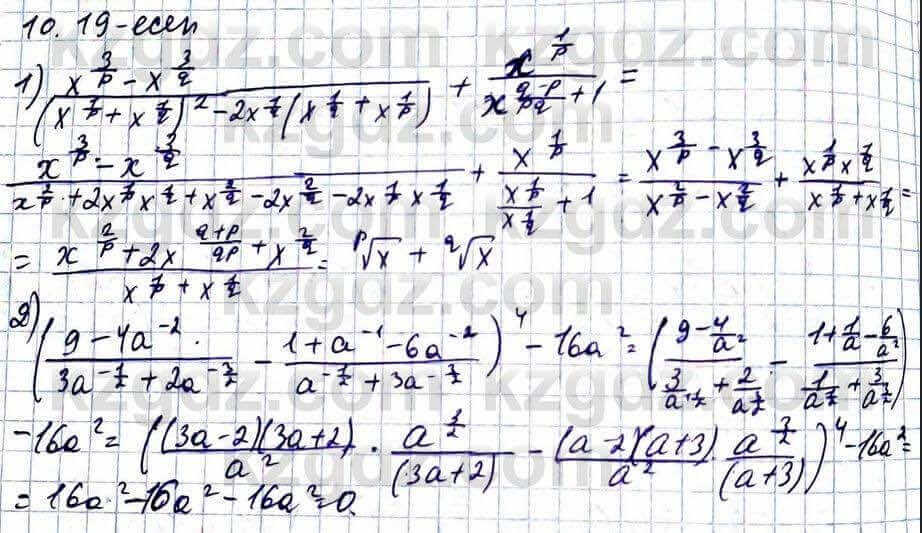 10.19-есеп
1) (x^{3/p} - x^{3/q}) / ((x^{1/p} + x^{1/q})^2 - 2x^{1/q}(x^{1/q} + x^{1/p})) + x^{1/p} / (x^{(q-p)/(pq)} + 1) =
(x^{3/p} - x^{3/q}) / (x^{2/p} + 2x^{1/p} x^{1/q} + x^{2/q} - 2x^{2/q} - 2x^{1/p} x^{1/q}) + x^{1/p} / (x^{1/p}/x^{1/q} + 1) = (x^{3/p} - x^{3/q}) / (x^{2/p} - x^{2/q}) + (x^{1/p} x^{1/q}) / (x^{1/p} + x^{1/q}) =
= (x^{2/p} + 2x^{(q+p)/(qp)} + x^{2/q}) / (x^{1/p} + x^{1/q}) = ᵖ√x + ᑫ√x
2) ((9 - 4a^{-2}) / (3a^{-1/2} + 2a^{-3/2}) - (1 + a^{-1} - 6a^{-2}) / (a^{-1/2} + 3a^{-3/2}))^4 - 16a^2 = ((9 - 4/a^2) / (3/a^{1/2} + 2/a^{3/2}) - (1 + 1/a - 6/a^2) / (1/a^{1/2} + 3/a^{3/2}))
- 16a^2 = (((3a-2)(3a+2)) / a^2 · a^{3/2} / (3a+2) - ((a-2)(a+3)) / a^2 · a^{3/2} / (a+3))^4 - 16a^2 =
= 16a^2 - 16a^2 - 16a^2 = 0.
kzgdz.com